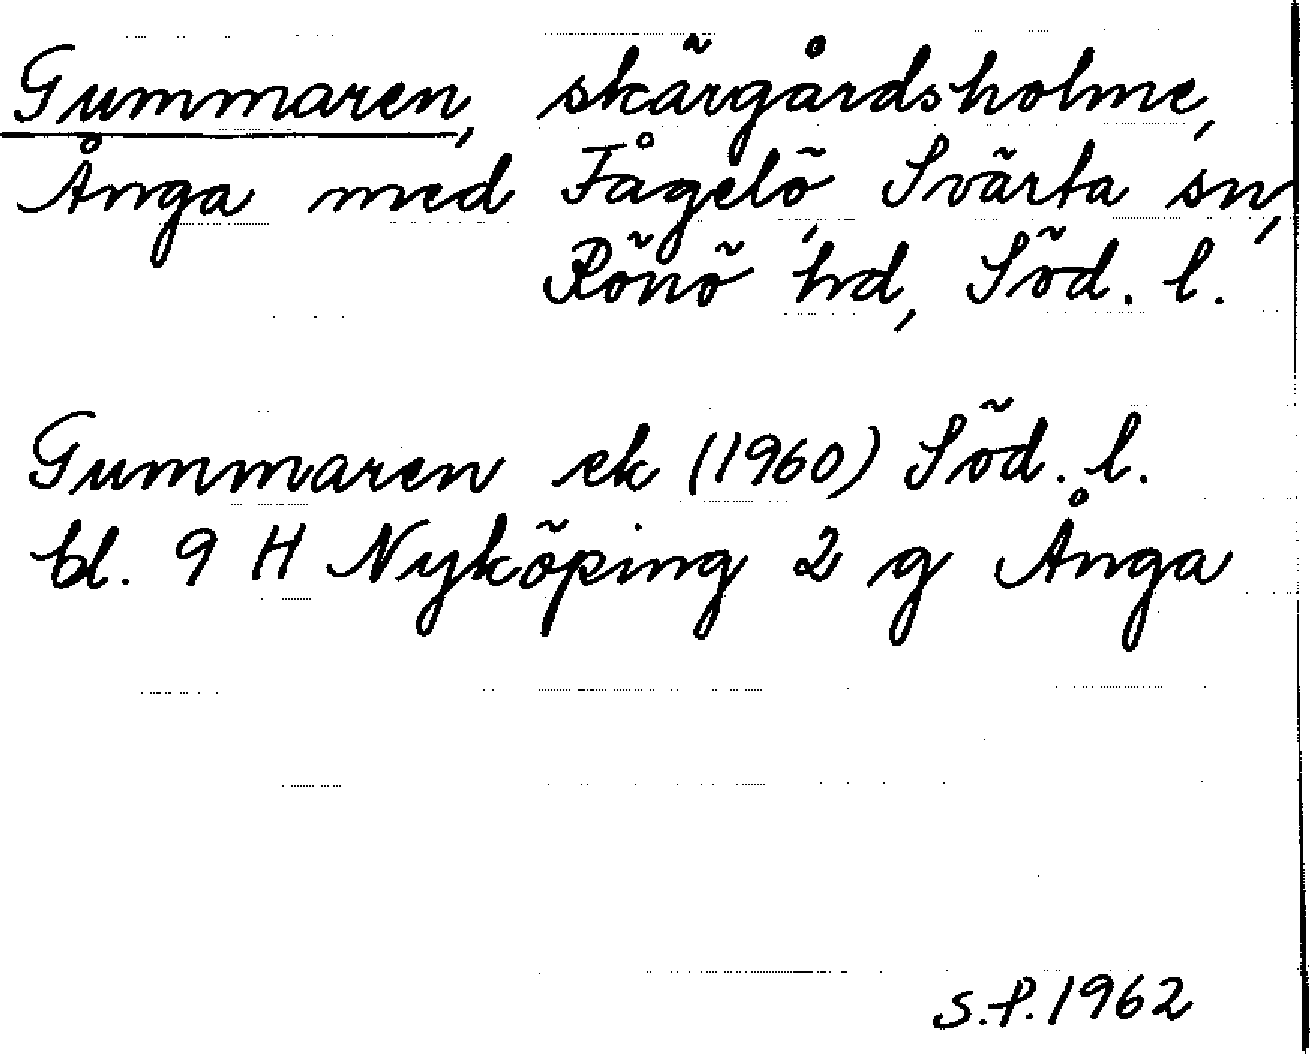 Gummaren, skärgårdsholme,
Ånga med Fågelö, Svärta sn,
Rönö hd, Söd. l.
Gummaren ek (1960) Söd. l.
bl. 9 H Nyköping 2 g Ånga
S.P. 1962